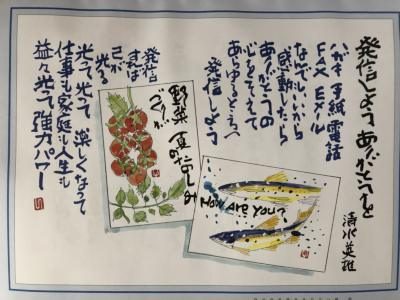 発信しよう ありがとうを
清水英雄
ハガキ 手紙 電話
FAX Eメール
なんでもいいから
感動したら
ありがとうの
心をそえて
あらゆるところへ
発信しよう
発信
すれば
己が
光る
光って 光って 楽しくなって
仕事も家庭も人生も
益々光って強力パワー
野菜
HOW ARE YOU?